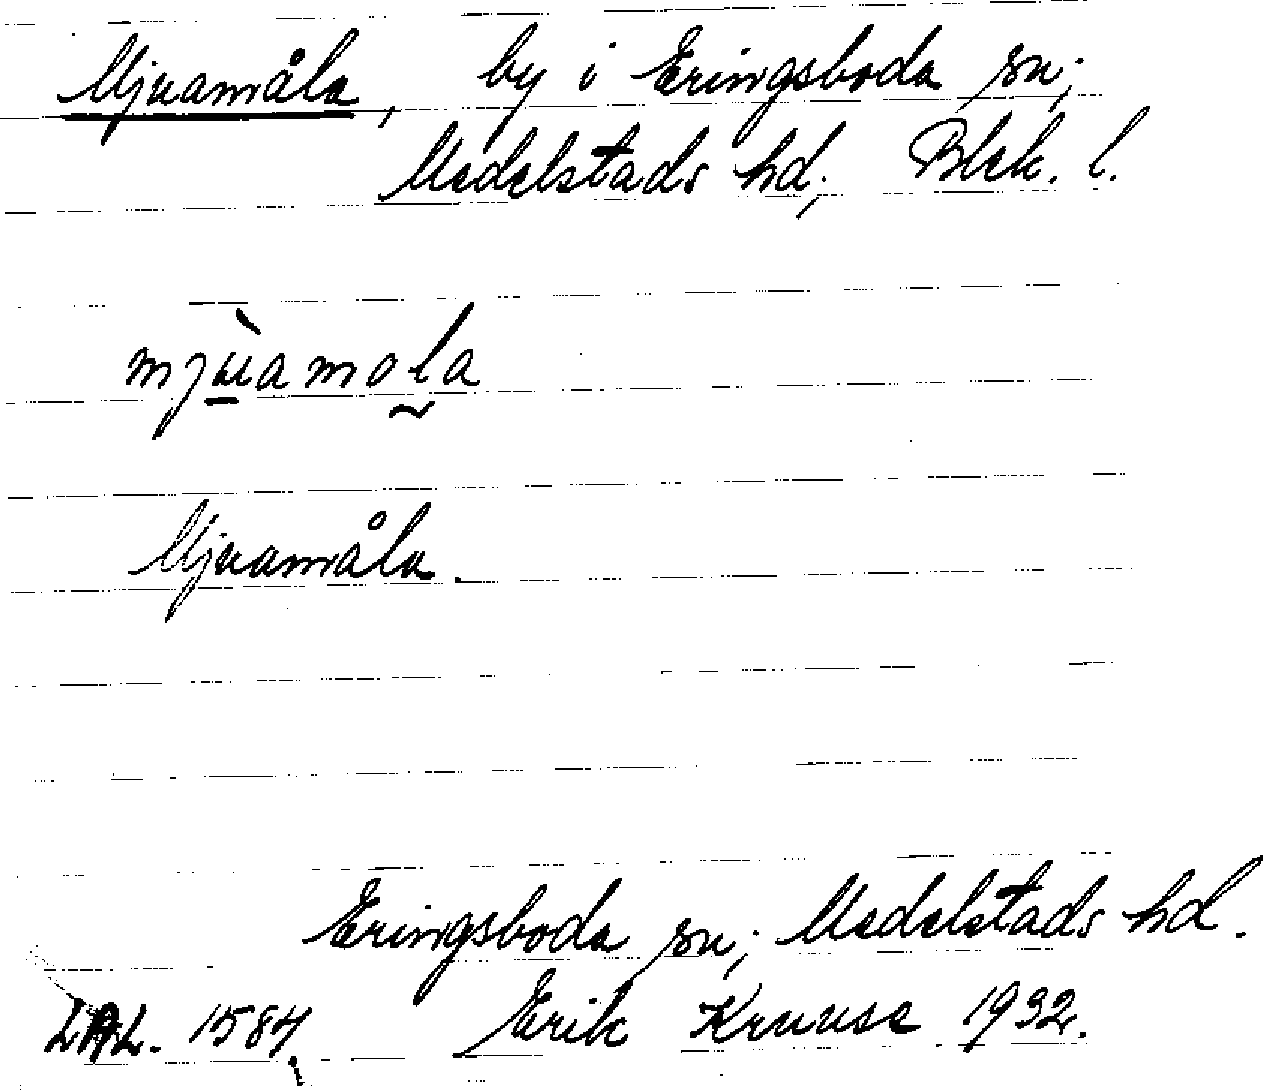 Mjuamåla, by i Eringsboda sn;
Medelstads hd; Blek. l.
mjùamola
Mjuamåla.
Eringsboda sn; Medelstads hd.
LAL. 1584. Erik Kruuse 1932.